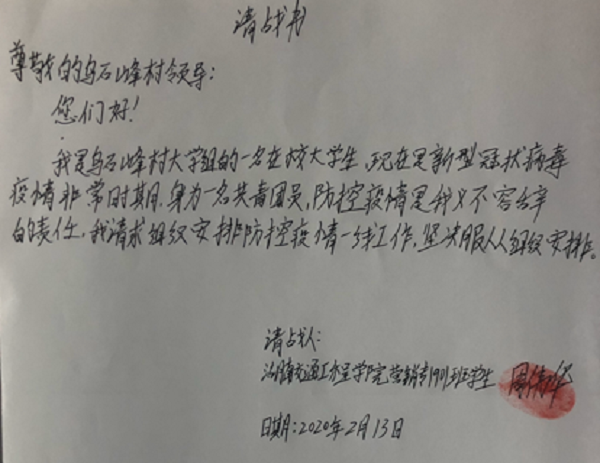 请战书
尊敬的乌石峰村领导：
您们好！
我是乌石峰村大学组的一名在校大学生，现在是新型冠状病毒
疫情非常时期，身为一名共青团员，防控疫情是我义不容辞
的责任，我请求组织安排防控疫情一线工作，坚决服从组织安排。
请战人：
湖南交通工程学院营销专1901班学生 周
日期：2020年2月13日